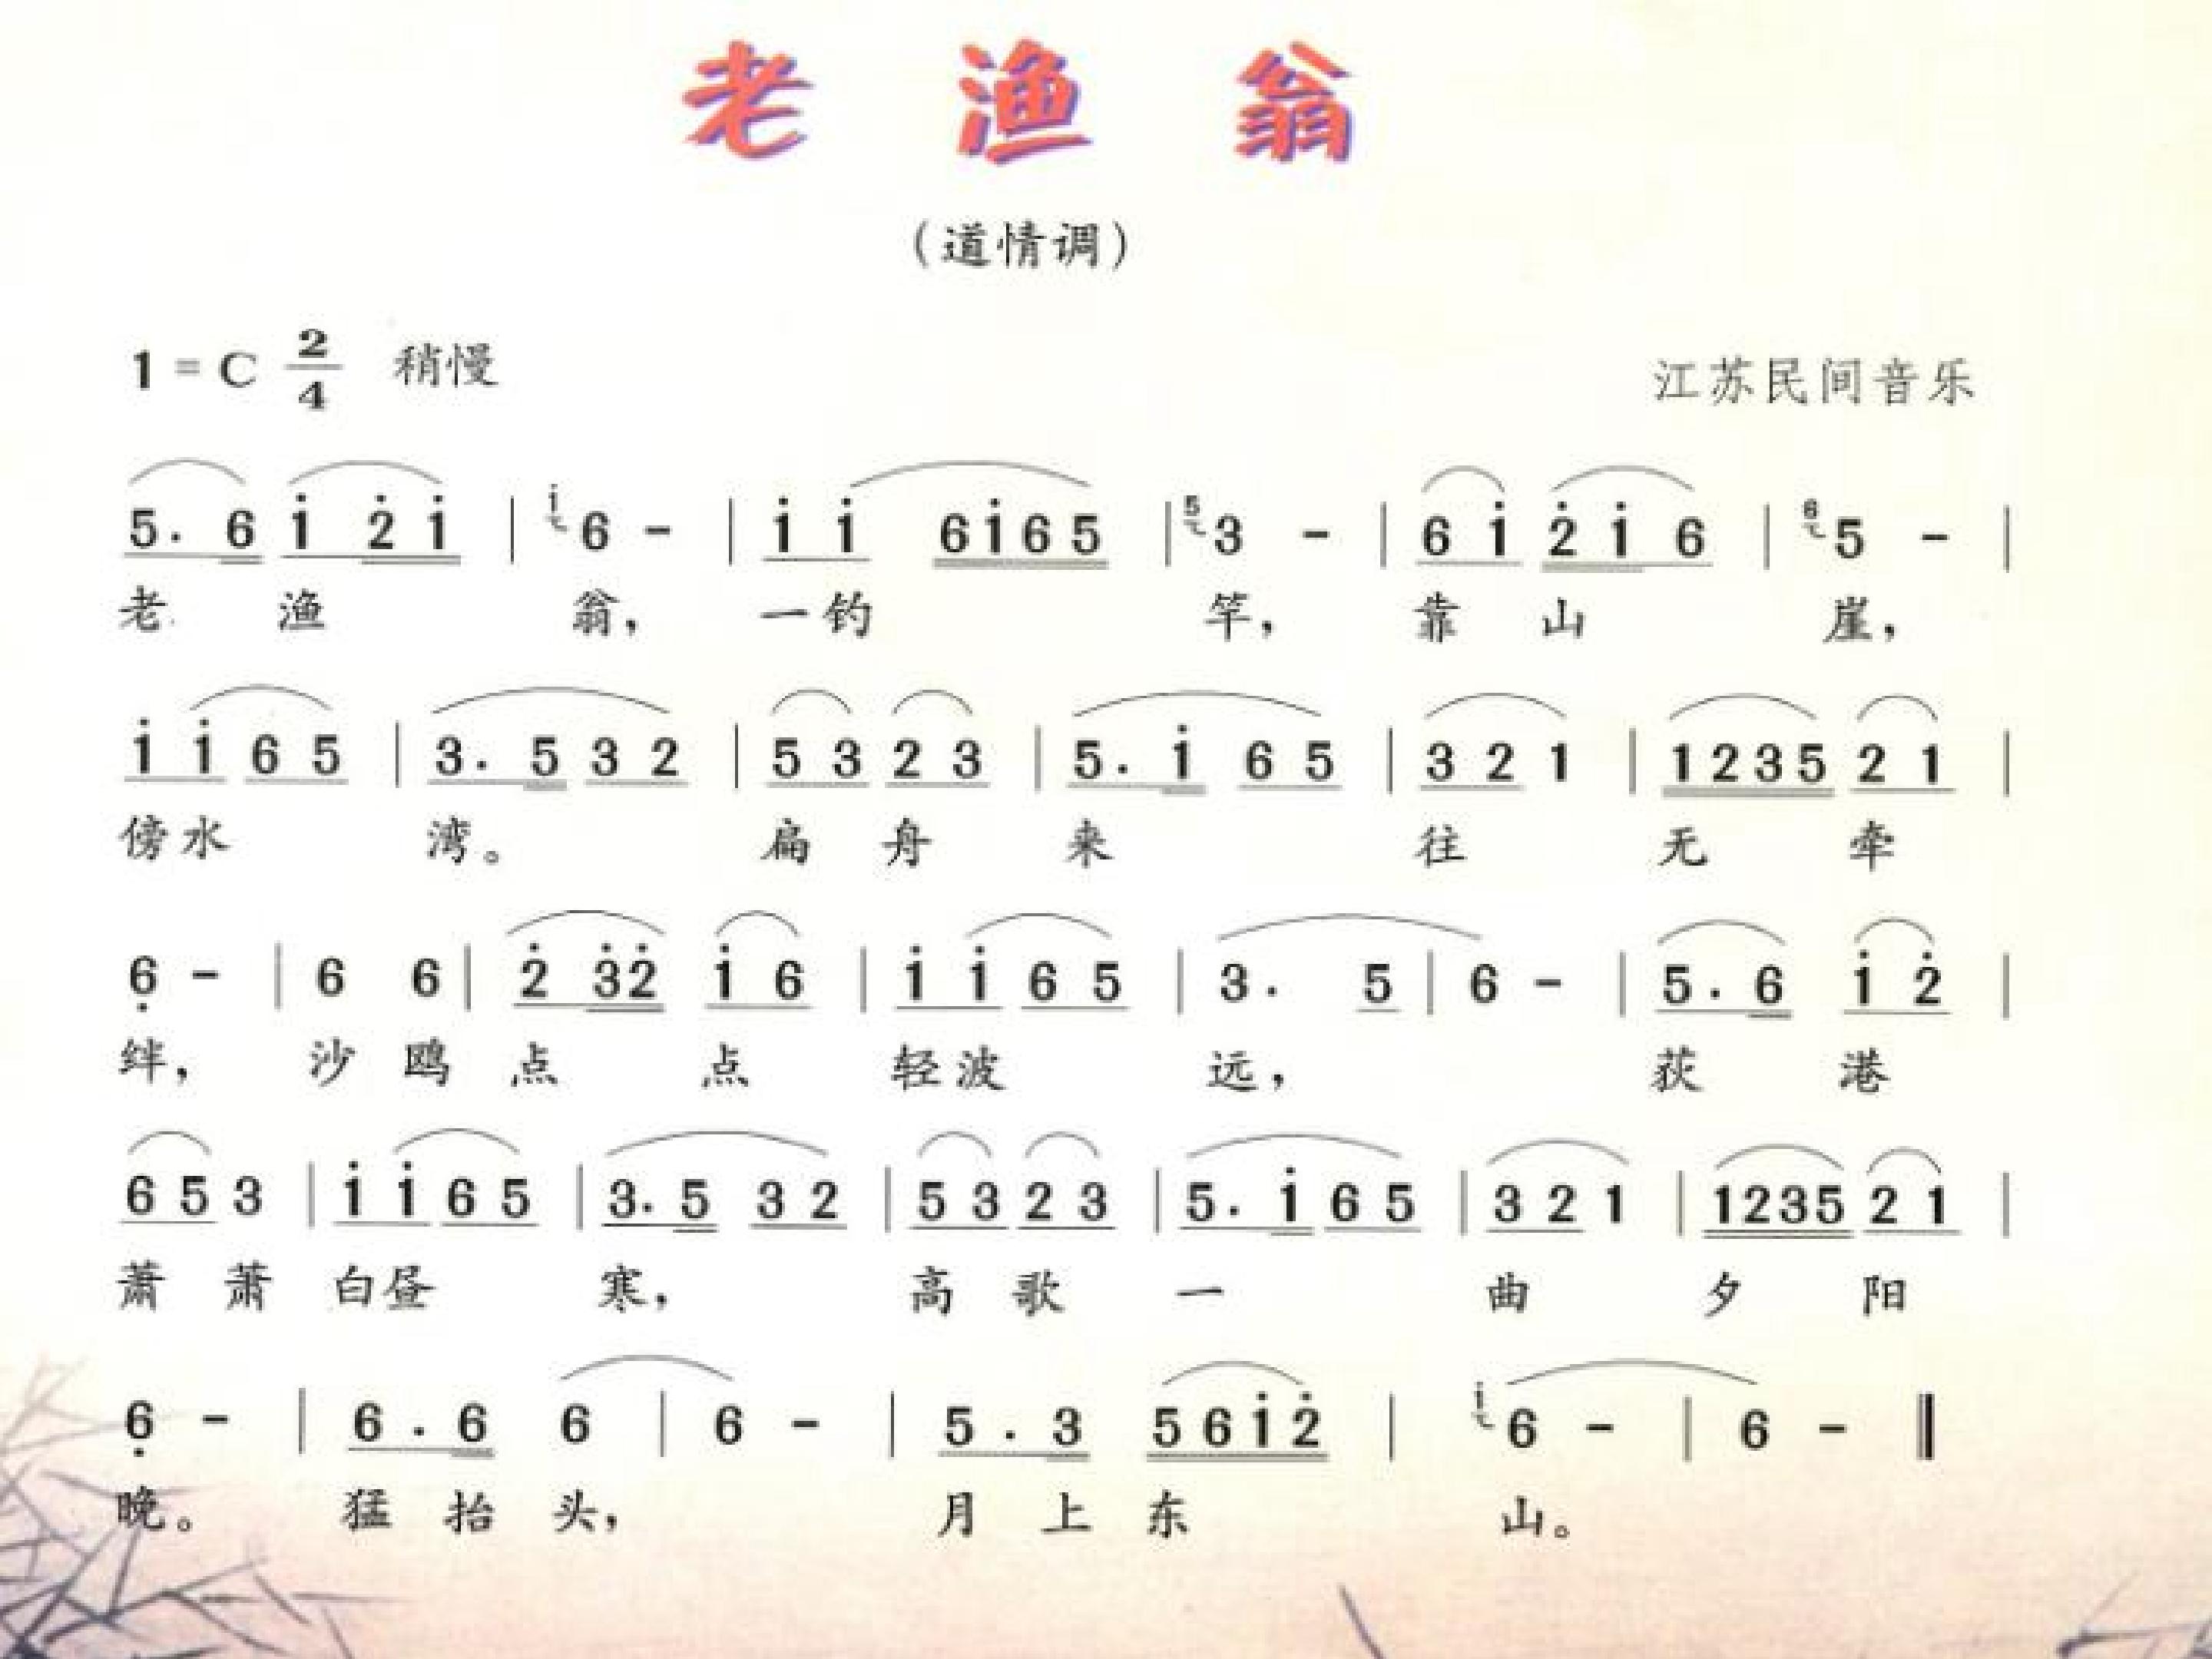 老 渔 翁
（道情调）
1 = C 2/4 稍慢
江苏民间音乐
5. 6 i̇ 2̇ i̇ | i̇ 6 - | i̇ i̇ 6 i̇ 6 5 | 5 3 - | 6 i̇ 2̇ i̇ 6 | 6 5 - |
老 渔 翁， 一 钓 竿， 靠 山 崖，
i̇ i̇ 6 5 | 3. 5 3 2 | 5 3 2 3 | 5. i̇ 6 5 | 3 2 1 | 1 2 3 5 2 1 |
傍 水 湾。 扁 舟 来 往 无 牵
6̣ - | 6 6 | 2̇ 3̇ 2̇ i̇ 6 | i̇ i̇ 6 5 | 3. 5 | 6 - | 5. 6 i̇ 2̇ |
绊， 沙 鸥 点 点 轻 波 远， 荻 港
6 5 3 | i̇ i̇ 6 5 | 3. 5 3 2 | 5 3 2 3 | 5. i̇ 6 5 | 3 2 1 | 1 2 3 5 2 1 |
萧 萧 白 昼 寒， 高 歌 一 曲 夕 阳
6̣ - | 6. 6 6 | 6 - | 5. 3 5 6 i̇ 2̇ | i̇ 6 - | 6 - ‖
晚。 猛 抬 头， 月 上 东 山。